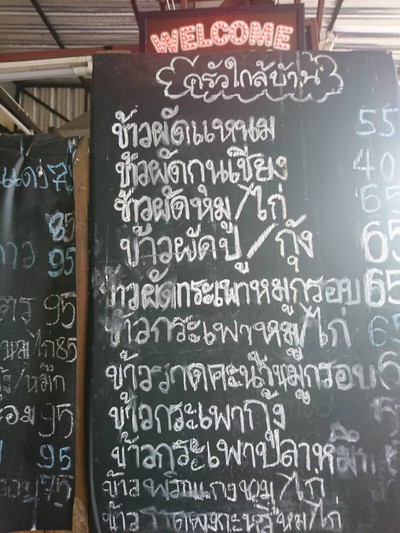 WELCOME
ครัวใกล้บ้าน
ข้าวผัดแหนม 55
ข้าวผัดกุนเชียง 40
ข้าวผัดหมู/ไก่ 65
ข้าวผัดปู/กุ้ง 65
ข้าวผัดกระเพาหมูกรอบ 65
ข้าวกระเพาหมู/ไก่ 65
ข้าวราดคะน้าหมูกรอบ
ข้าวกระเพากุ้ง
ข้าวกระเพาปลาหมึก
ข้าวพริกแกงหมู/ไก่
ข้าวราดผงกะหรี่หมู/ไก่
85
95
95
ไก่ 85
/หมึก
95
95